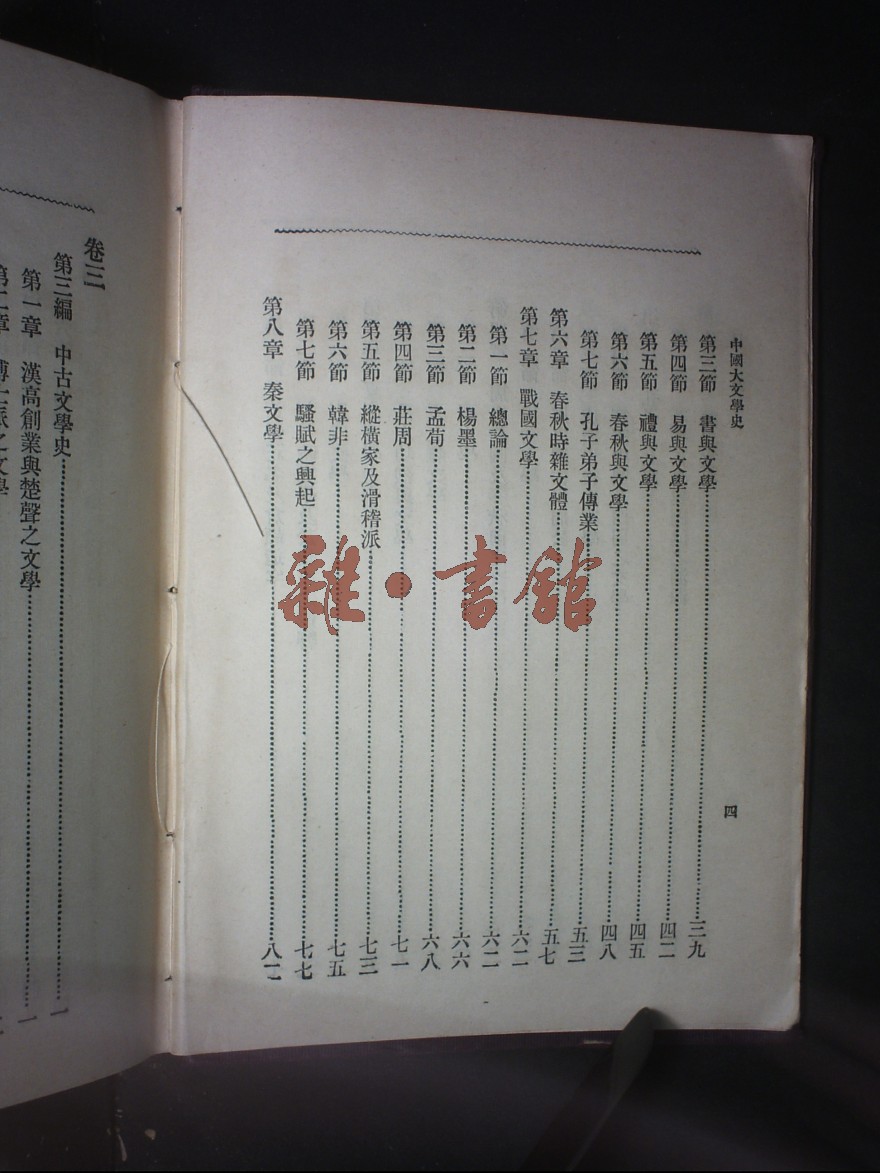 中國大文學史
四
第三節 書與文學 三九
第四節 易與文學 四二
第五節 禮與文學 四五
第六節 春秋與文學 四八
第七節 孔子弟子傳業 五三
第六章 春秋時雜文體 五七
第七章 戰國文學 六二
第一節 總論 六二
第二節 楊墨 六六
第三節 孟荀 六八
第四節 莊周 七一
第五節 縱橫家及滑稽派 七三
第六節 韓非 七五
第七節 騷賦之興起 七七
第八章 秦文學
雜·書館
卷三
第三編 中古文學史 一
第一章 漢高創業與楚聲之文學 一